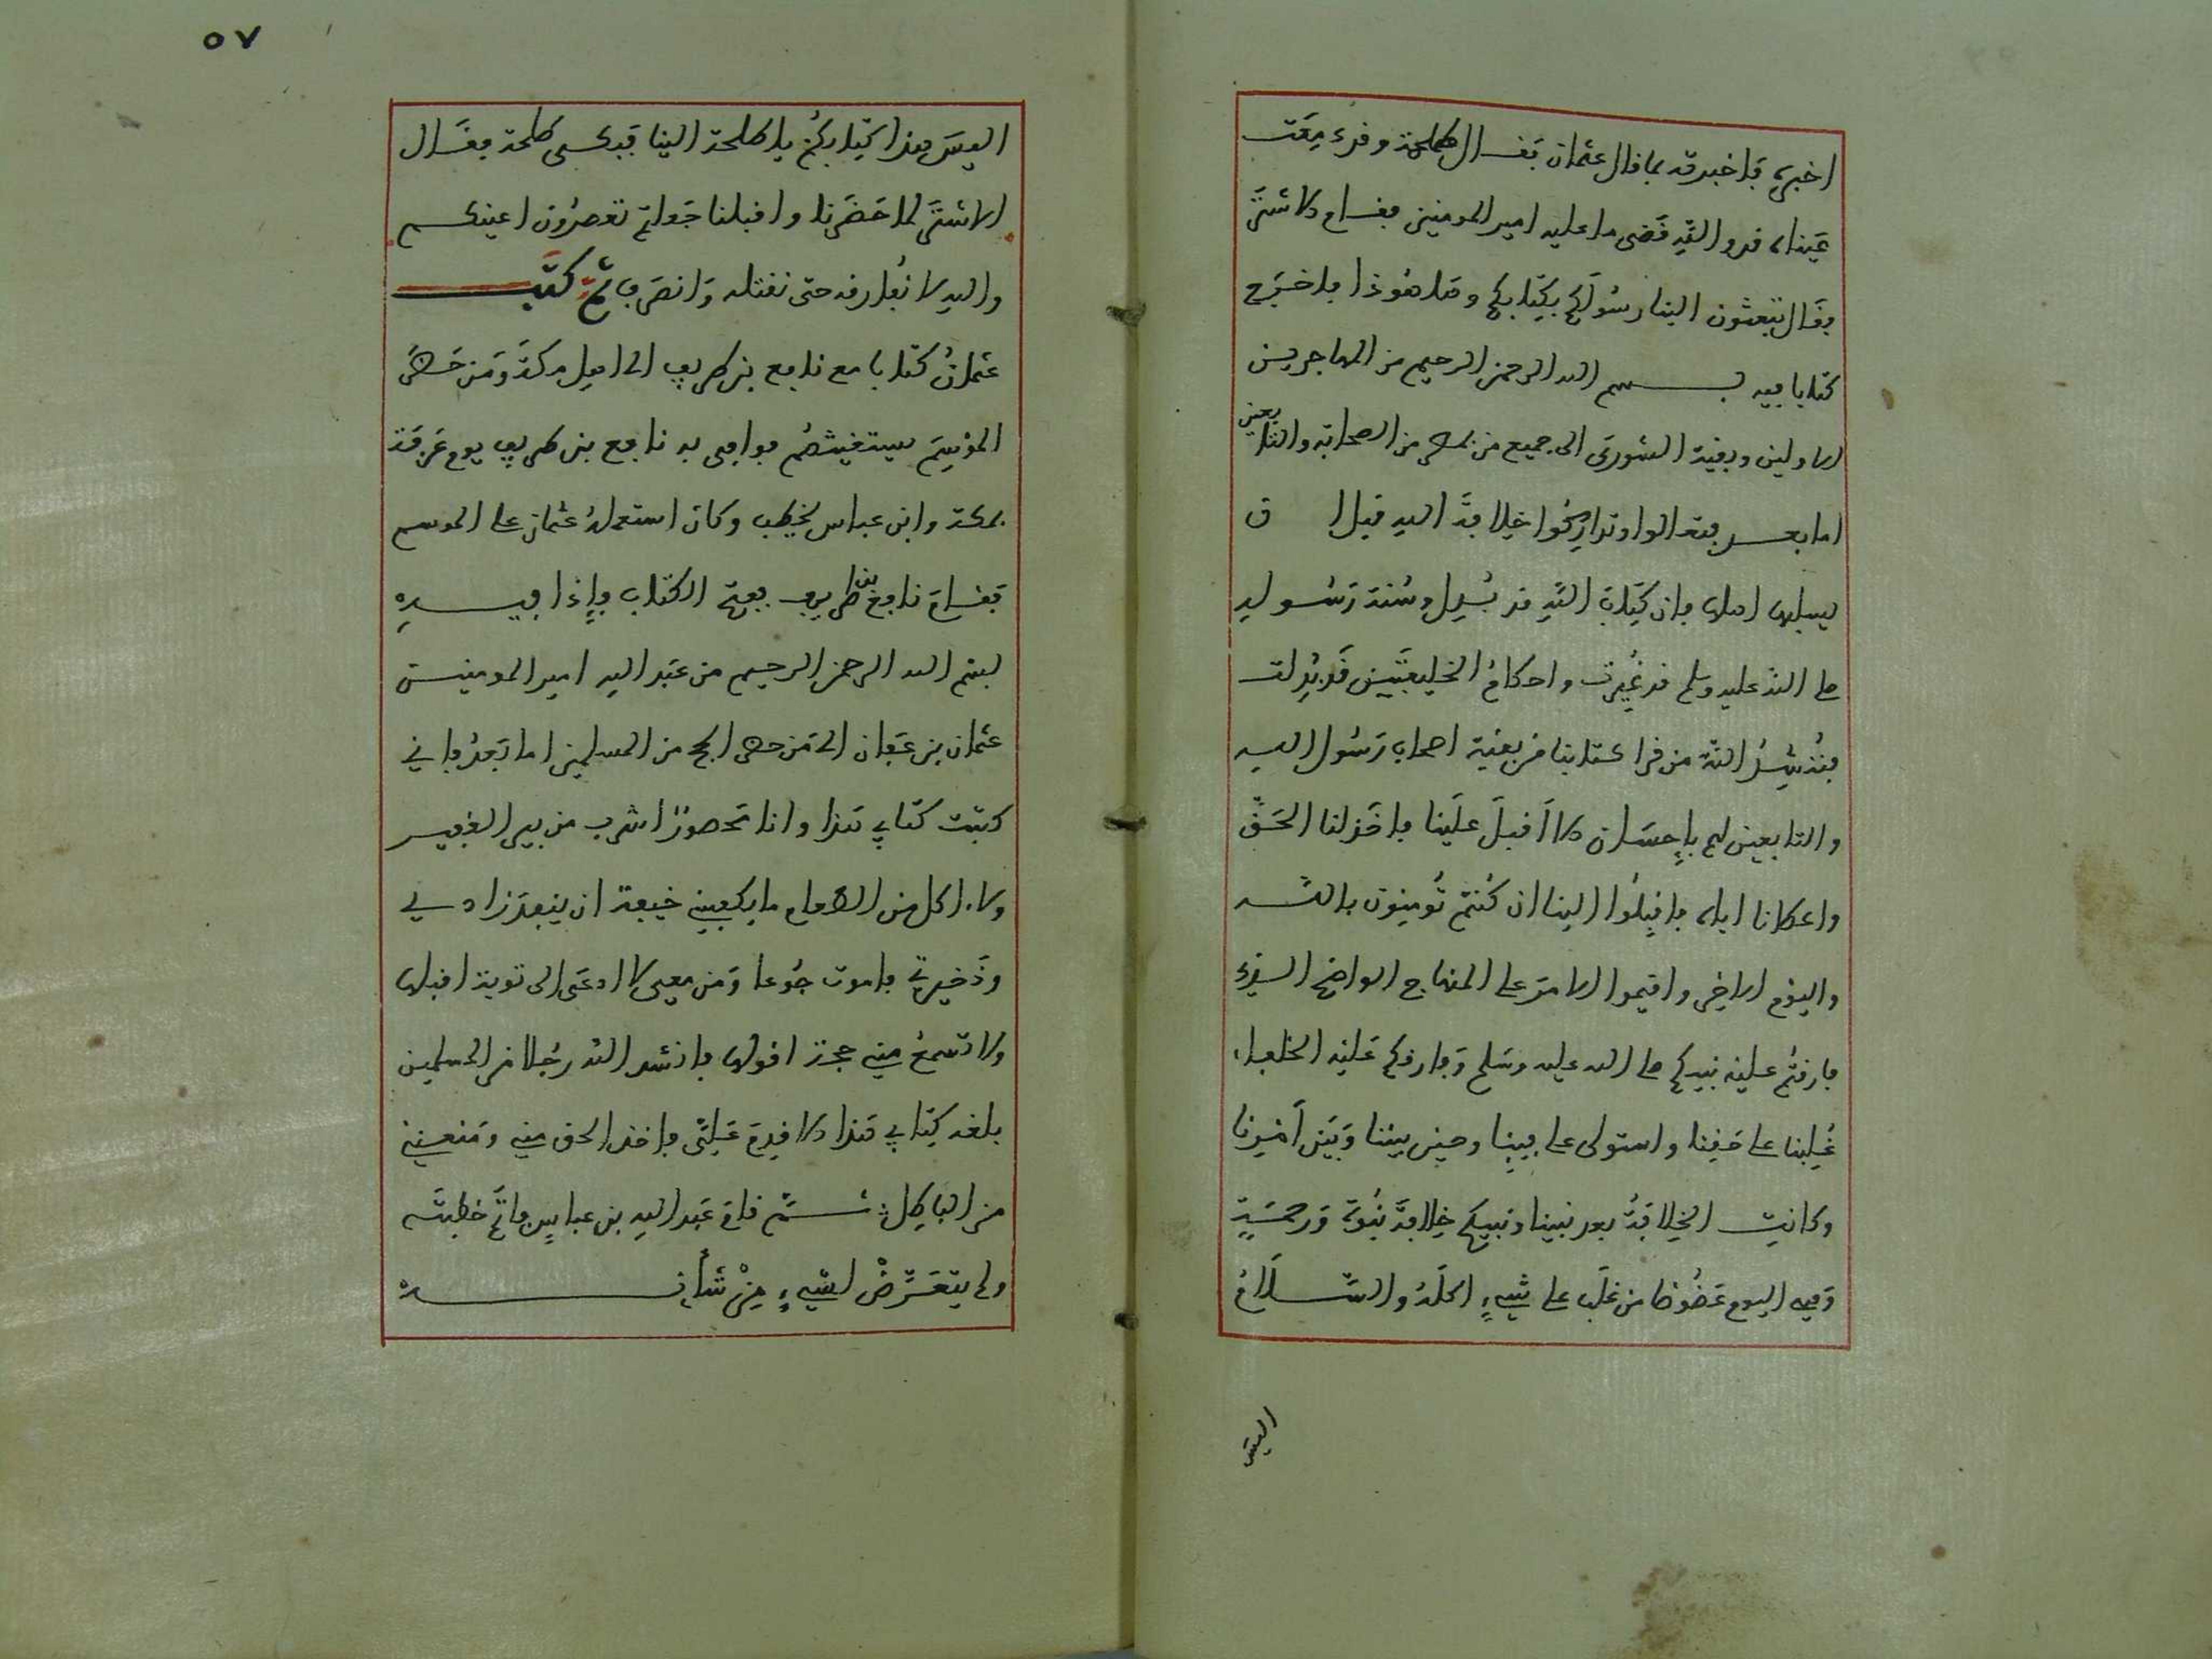 اخبره فاخبرته بما قال عثمان فقال طلحة وقد دمعت
عيناه قد والله قضى ما عليه امير المومنين فقام الاشتر
فقال تبعثون الينا رسولكم بكتابكم وها هو ذا فاخرج
كتابا فيه بسم الله الرحمن الرحيم من المهاجرين
الاولين وبقية الشورى الى جميع من بمصر من الصحابة والتابعين
اما بعد فتعالوا وتداركوا خلافة الله قبل ان
يسلبها اهلها فان كتاب الله قد بدل وسنة رسوله
صلى الله عليه وسلم قد غيرت واحكام الخليفتين قد بدلت
فننشد الله من قرا كتابنا من بقية اصحاب رسول الله
والتابعين لهم بإحسان الا أقبل علينا فاخذ لنا الحق
واعطانا اياه فاقبلوا الينا ان كنتم تومنون بالله
واليوم الاخر واقيموا الامر على المنهاج الواضح الذي
فارقتم عليه نبيكم صلى الله عليه وسلم وفارقكم عليه الخلفاء
غلبنا على حقنا واستولى على فيئنا وحيل بيننا وبين أمرنا
وكانت الخلافة بعد نبينا ونبيكم خلافة نبوة ورحمة
وهي اليوم عضوضا من غلب على شيء اكله والسلام
اليس
٥٧
اليس هذا كتابكم يا طلحة الينا فبكى طلحة فقال
الاشتر لما حضرنا واقبلنا جعلتم تعصرون اعينكم
والله لا نفارقه حتى نقتله وانصرف ثم كتب
عثمان كتابا مع نافع بن طريف الى اهل مكة ومن حضر
الموسم يستغيثهم فوافى به نافع بن طريف يوم عرفة
بمكة وابن عباس يخطب وكان استعمله عثمان على الموسم
فقام نافع بن طريف ففتح الكتاب فإذا فيه
بسم الله الرحمن الرحيم من عبد الله امير المومنين
عثمان بن عفان الى من حضر الحج من المسلمين اما بعد فاني
كتبت كتابي هذا وانا محصور اشرب من بير القصر
ولا اكل من الطعام ما يكفيني خيفة ان ينفد زادي
وذخيرتي فاموت جوعا ومن معي لا ادعى الى توبة اقبلها
ولا تسمع مني حجة اقولها فانشد الله رجلا من المسلمين
بلغه كتابي هذا الا قدم علي فاخذ الحق مني ومنعني
من الباطل ثم قام عبد الله بن عباس فاتم خطبته
ولم يتعرض لشيء من شأنه